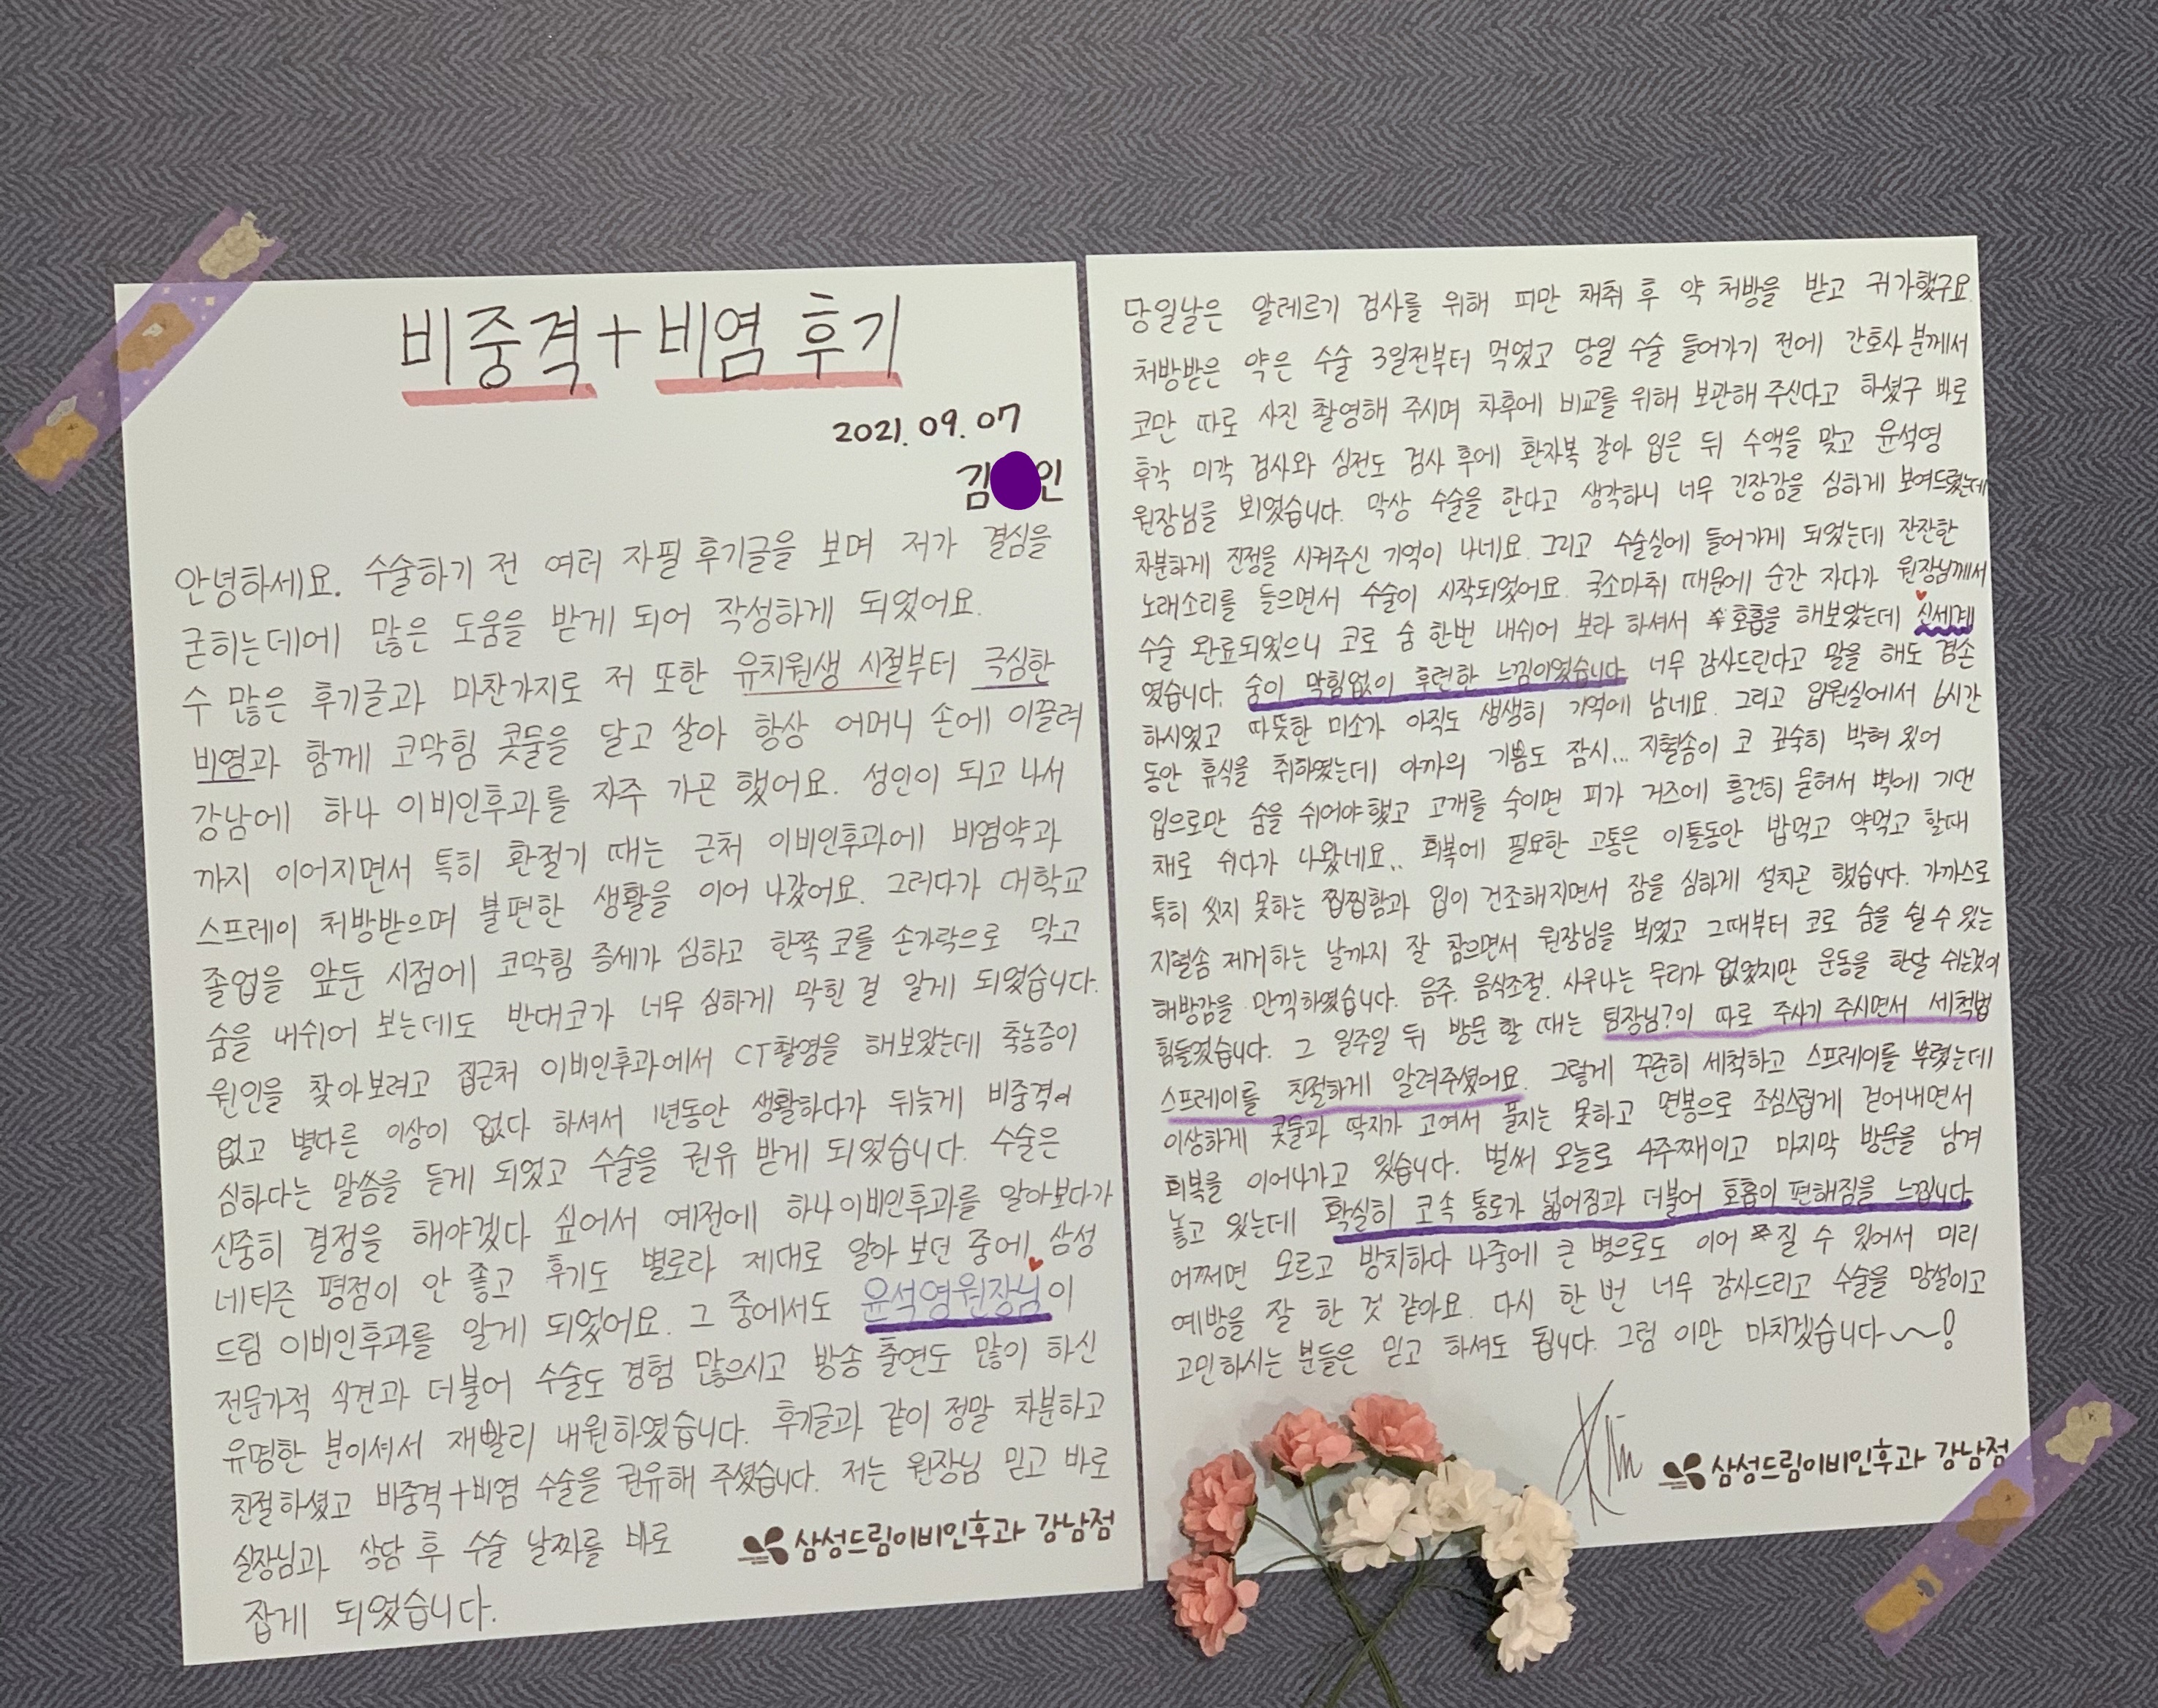 비중격+비염 후기
2021. 09. 07
김 인
안녕하세요. 수술하기 전 여러 자필 후기글을 보며 저가 결심을
굳히는데에 많은 도움을 받게 되어 작성하게 되었어요.
수 많은 후기글과 마찬가지로 저 또한 유치원생 시절부터 극심한
비염과 함께 코막힘 콧물을 달고 살아 항상 어머니 손에 이끌려
강남에 하나 이비인후과를 자주 가곤 했어요. 성인이 되고 나서
까지 이어지면서 특히 환절기 때는 근처 이비인후과에 비염약과
스프레이 처방받으며 불편한 생활을 이어 나갔어요. 그러다가 대학교
졸업을 앞둔 시점에 코막힘 증세가 심하고 한쪽 코를 손가락으로 막고
숨을 내쉬어 보는데도 반대코가 너무 심하게 막힌 걸 알게 되었습니다.
원인을 찾아보려고 집근처 이비인후과에서 CT촬영을 해보았는데 축농증이
없고 별다른 이상이 없다 하셔서 1년동안 생활하다가 뒤늦게 비중격이
심하다는 말씀을 듣게 되었고 수술을 권유 받게 되었습니다. 수술은
신중히 결정을 해야겠다 싶어서 예전에 하나이비인후과를 알아보다가
네티즌 평점이 안 좋고 후기도 별로라 제대로 알아 보던 중에 삼성
드림 이비인후과를 알게 되었어요. 그 중에서도 윤석영원장님이
전문가적 식견과 더불어 수술도 경험 많으시고 방송 출연도 많이 하신
유명한 분이셔서 재빨리 내원하였습니다. 후기글과 같이 정말 차분하고
친절하셨고 비중격+비염 수술을 권유해 주셨습니다. 저는 원장님 믿고 바로
실장님과 상담 후 수술 날짜를 바로
잡게 되었습니다.
삼성드림이비인후과 강남점
당일날은 알레르기 검사를 위해 피만 채취 후 약 처방을 받고 귀가했구요.
처방받은 약은 수술 3일전부터 먹었고 당일 수술 들어가기 전에 간호사 분께서
코만 따로 사진 촬영해 주시며 차후에 비교를 위해 보관해 주신다고 하셨구 바로
후각 미각 검사와 심전도 검사 후에 환자복 갈아 입은 뒤 수액을 맞고 윤석영
원장님를 뵈었습니다. 막상 수술을 한다고 생각하니 너무 긴장감을 심하게 보여드렸는데
차분하게 진정을 시켜주신 기억이 나네요. 그리고 수술실에 들어가게 되었는데 잔잔한
노래소리를 들으면서 수술이 시작되었어요. 국소마취 때문에 순간 자다가 원장님께서
수술 완료되었으니 코로 숨 한번 내쉬어 보라 하셔서 호흡을 해보았는데 신세계
였습니다. 숨이 막힘없이 후련한 느낌이였습니다 너무 감사드린다고 말을 해도 겸손
하시었고 따뜻한 미소가 아직도 생생히 기억에 남네요. 그리고 입원실에서 6시간
동안 휴식을 취하였는데 아까의 기쁨도 잠시... 지혈솜이 코 깊숙히 박혀 있어
입으로만 숨을 쉬어야 했고 고개를 숙이면 피가 거즈에 흥건히 묻혀서 벽에 기댄
채로 쉬다가 나왔네요.. 회복에 필요한 고통은 이틀동안 밥먹고 약먹고 할때
특히 씻지 못하는 찝찝함과 입이 건조해지면서 잠을 심하게 설치곤 했습니다. 가까스로
지혈솜 제거하는 날까지 잘 참으면서 원장님을 뵈었고 그때부터 코로 숨을 쉴 수 있는
해방감을 만끽하였습니다. 음주, 음식조절, 사우나는 무리가 없었지만 운동을 한달 쉬는것이
힘들었습니다. 그 일주일 뒤 방문 할 때는 팀장님?이 따로 주사기 주시면서 세척법
스프레이를 친절하게 알려주셨어요. 그렇게 꾸준히 세척하고 스프레이를 뿌렸는데
이상하게 콧물과 딱지가 고여서 풀지는 못하고 면봉으로 조심스럽게 걷어내면서
회복을 이어나가고 있습니다. 벌써 오늘로 4주째이고 마지막 방문을 남겨
놓고 있는데 확실히 코속 통로가 넓어짐과 더불어 호흡이 편해짐을 느낍니다
어쩌면 모르고 방치하다 나중에 큰 병으로도 이어 질 수 있어서 미리
예방을 잘 한 것 같아요. 다시 한 번 너무 감사드리고 수술을 망설이고
고민하시는 분들은 믿고 하셔도 됩니다. 그럼 이만 마치겠습니다~!
Kim
삼성드림이비인후과 강남점